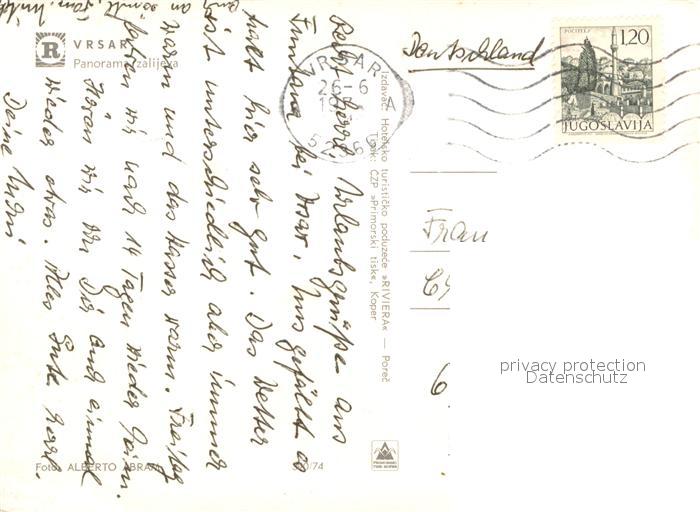 VRSAR
Panorama zalijeva
R
Recht herzl. Urlaubsgrüße aus
Funtana bei Vrsar. Uns gefällt es
hier sehr gut. Das Wetter
ist unterschiedlich aber immer
warm und das Wasser warm. Freitag
wir nach 14 Tagen wieder heim.
Hören wir von Dir auch einmal
wieder etwas. Alles Gute herzl.
Deine
Izdavač: Hotelsko turističko poduzeće »RIVIERA« — Poreč
Tisak: ČZP »Primorski tisk«, Koper
Foto: ALBERTO ABRAM
/74
VRSAR
26-6
A
Deutschland
POČITELJ
1.20
JUGOSLAVIJA
Frau
6
privacy protection
Datenschutz